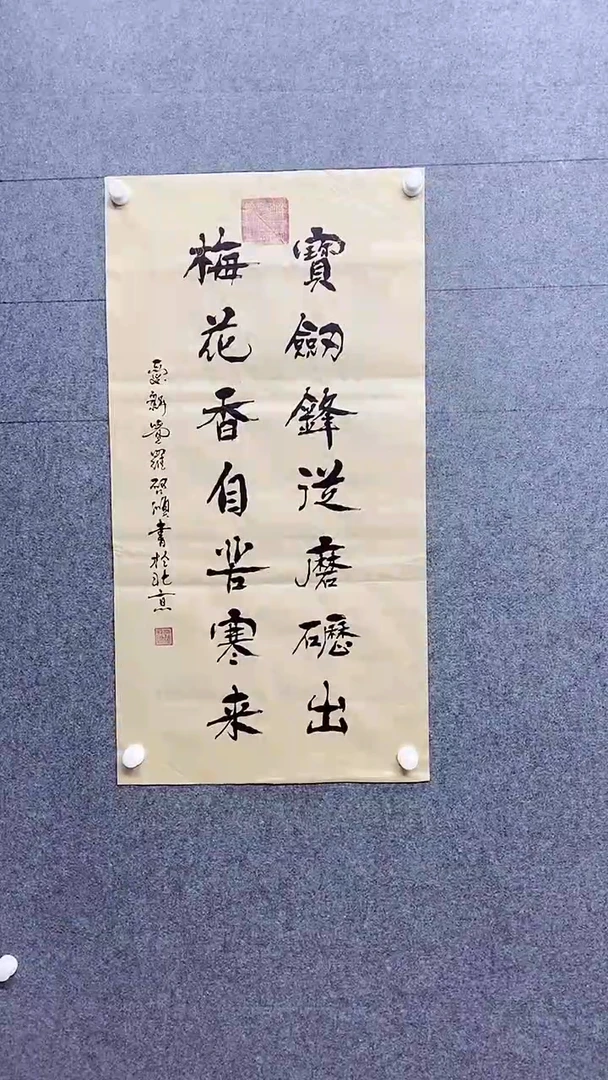 寶劍鋒從磨礪出
梅花香自苦寒来
愛新覺羅啓碩書於北京